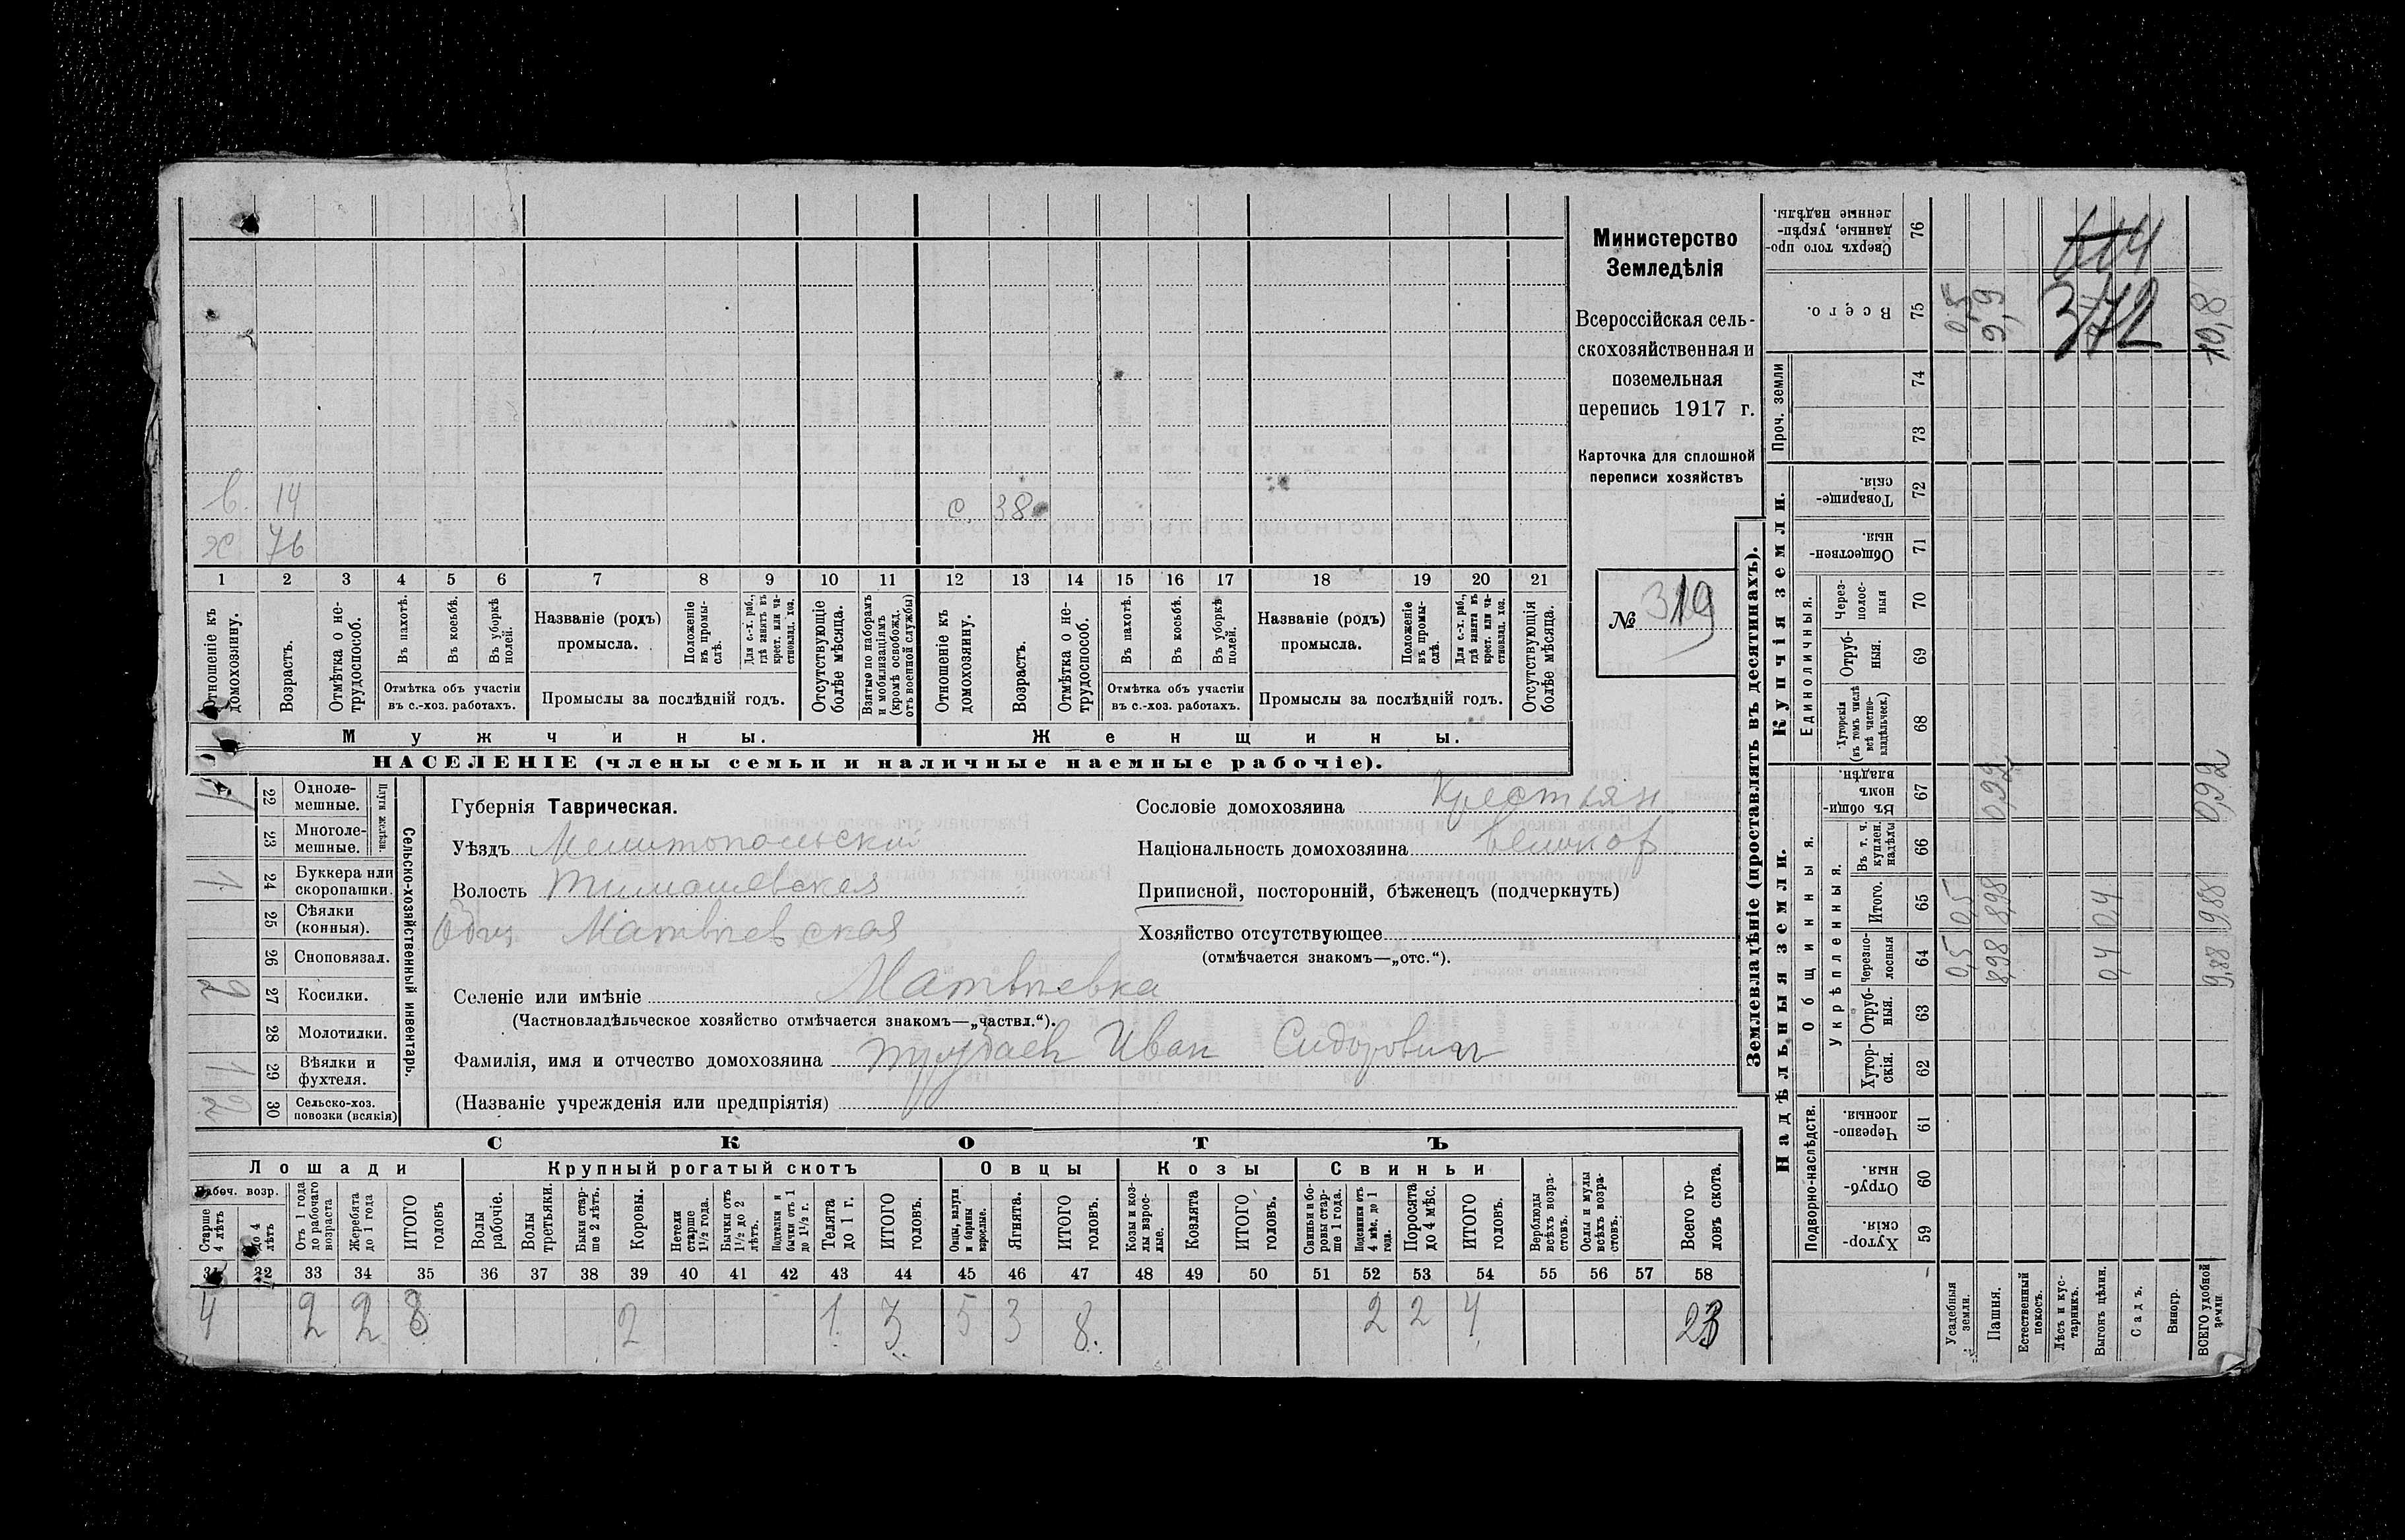 Министерство
Земледѣлія
Всероссійская сель-
скохозяйственная и
поземельная
перепись 1917 г.
Карточка для сплошной
переписи хозяйствъ
№ 319
в. 14
с. 38
х 76
1 2 3 4 5 6 7 8 9 10 11 12 13 14 15 16 17 18 19 20 21
Отношеніе къ домохозяину.
Возрастъ.
Отмѣтка о не-трудоспособ.
Въ пахотѣ.
Въ косьбѣ.
Въ уборкѣ полей.
Отмѣтка объ участіи
въ с.-хоз. работахъ.
Названіе (родъ)
промысла.
Положеніе въ промы-слѣ.
Для с.-х. раб., гдѣ занятъ въ крест. или ча-стновлад. хоз.
Промыслы за послѣдній годъ.
Отсутствующіе болѣе мѣсяца.
Взятые по наборамъ и мобилизаціямъ (кромѣ освобожд. отъ военной службы)
Отношеніе къ домохозяину.
Возрастъ.
Отмѣтка о не-трудоспособ.
Въ пахотѣ.
Въ косьбѣ.
Въ уборкѣ полей.
Отмѣтка объ участіи
въ с.-хоз. работахъ.
Названіе (родъ)
промысла.
Положеніе въ промы-слѣ.
Для с.-х. раб., гдѣ занята въ крест. или ча-стновлад. хоз.
Промыслы за послѣдній годъ.
Отсутствующія болѣе мѣсяца.
Мужчины.
Женщины.
НАСЕЛЕНІЕ (члены семьи и наличные наемные рабочіе).
Сельско-хозяйственный инвентарь.
Плуги желѣзн.
1 22 Одноле-мешные.
23 Многоле-мешные.
1 24 Буккера или скоропашки.
25 Сѣялки (конныя).
26 Сноповязал.
2 27 Косилки.
28 Молотилки.
1 29 Вѣялки и фухтеля.
2 30 Сельско-хоз. повозки (всякія)
Губернія Таврическая.
Уѣздъ Мелитопольский
Волость Тимошевская
Матвѣевская
Селеніе или имѣніе Матвѣевка
(Частновладѣльческое хозяйство отмѣчается знакомъ—„частвл.“).
Фамилія, имя и отчество домохозяина Иван Сидорович
(Названіе учрежденія или предпріятія)
Сословіе домохозяина Крестьян
Національность домохозяина
Приписной, посторонній, бѣженецъ (подчеркнуть)
Хозяйство отсутствующее
(отмѣчается знакомъ—„отс.“).
СКОТЪ
Лошади
Крупный рогатый скотъ
Овцы
Козы
Свиньи
Рабоч. возр.
Старше 4 лѣтъ
до 4 лѣтъ
Отъ 1 года до рабочаго возраста
Жеребята до 1 года
ИТОГО головъ
Волы рабочіе.
Волы третьяки.
Быки стар-ше 2 лѣтъ.
Коровы.
Нетели старше 1½ года.
Бычки отъ 1½ до 2 лѣтъ.
Подтелки и бычки отъ 1 до 1½ г.
Телята до 1 г.
ИТОГО головъ.
Овцы, валухи и бараны взрослые.
Ягнята.
ИТОГО головъ.
Козы и коз-лы взрос-лые.
Козлята
ИТОГО головъ.
Свиньи и бо-ровы стар-ше 1 года.
Подсвинки отъ 4 мѣс. до 1 года.
Поросята до 4 мѣс.
ИТОГО головъ.
Верблюды всѣхъ возра-стовъ.
Ослы и мулы всѣхъ возра-стовъ.
Всего го-ловъ скота.
31 32 33 34 35 36 37 38 39 40 41 42 43 44 45 46 47 48 49 50 51 52 53 54 55 56 57 58
4 2 2 8 2 1. 3 5 3 8. 2 2 4 23
Землевладѣніе (проставлять въ десятинахъ).
Надѣльныя земли.
Купчія земли.
Проч. земли
Подворно-наслѣдств.
Общинныя.
Укрѣпленныя.
Единоличныя.
Хутор-скія. 59
Отруб-ныя. 60
Черезпо-лосныя. 61
Хутор-скія. 62
Отруб-ныя. 63
Черезпо-лосныя 64
Итого. 65
Въ т. ч. куплен. надѣлы 66
Въ общин-номъ владѣн. 67
Хуторскія (въ томъ числѣ всѣ частно-владѣльческ.) 68
Отруб-ныя. 69
Через-полос-ныя 70
Обществен-ныя. 71
Товарище-скія. 72
73
74
Всего. 75
Сверхъ того про-данные, укрѣп-ленные надѣлы. 76
Усадебныя земли. 0,5 0,5 0,5
Пашня. 8,98 8,98 0,92 9,9
Естественный покосъ.
Лѣсъ и кус-тарникъ.
Выгонъ цѣлин. 0,4 0,4
Садъ.
Виногр.
ВСЕГО удобной земли. 9,88 9,88 0,92 10,8
372